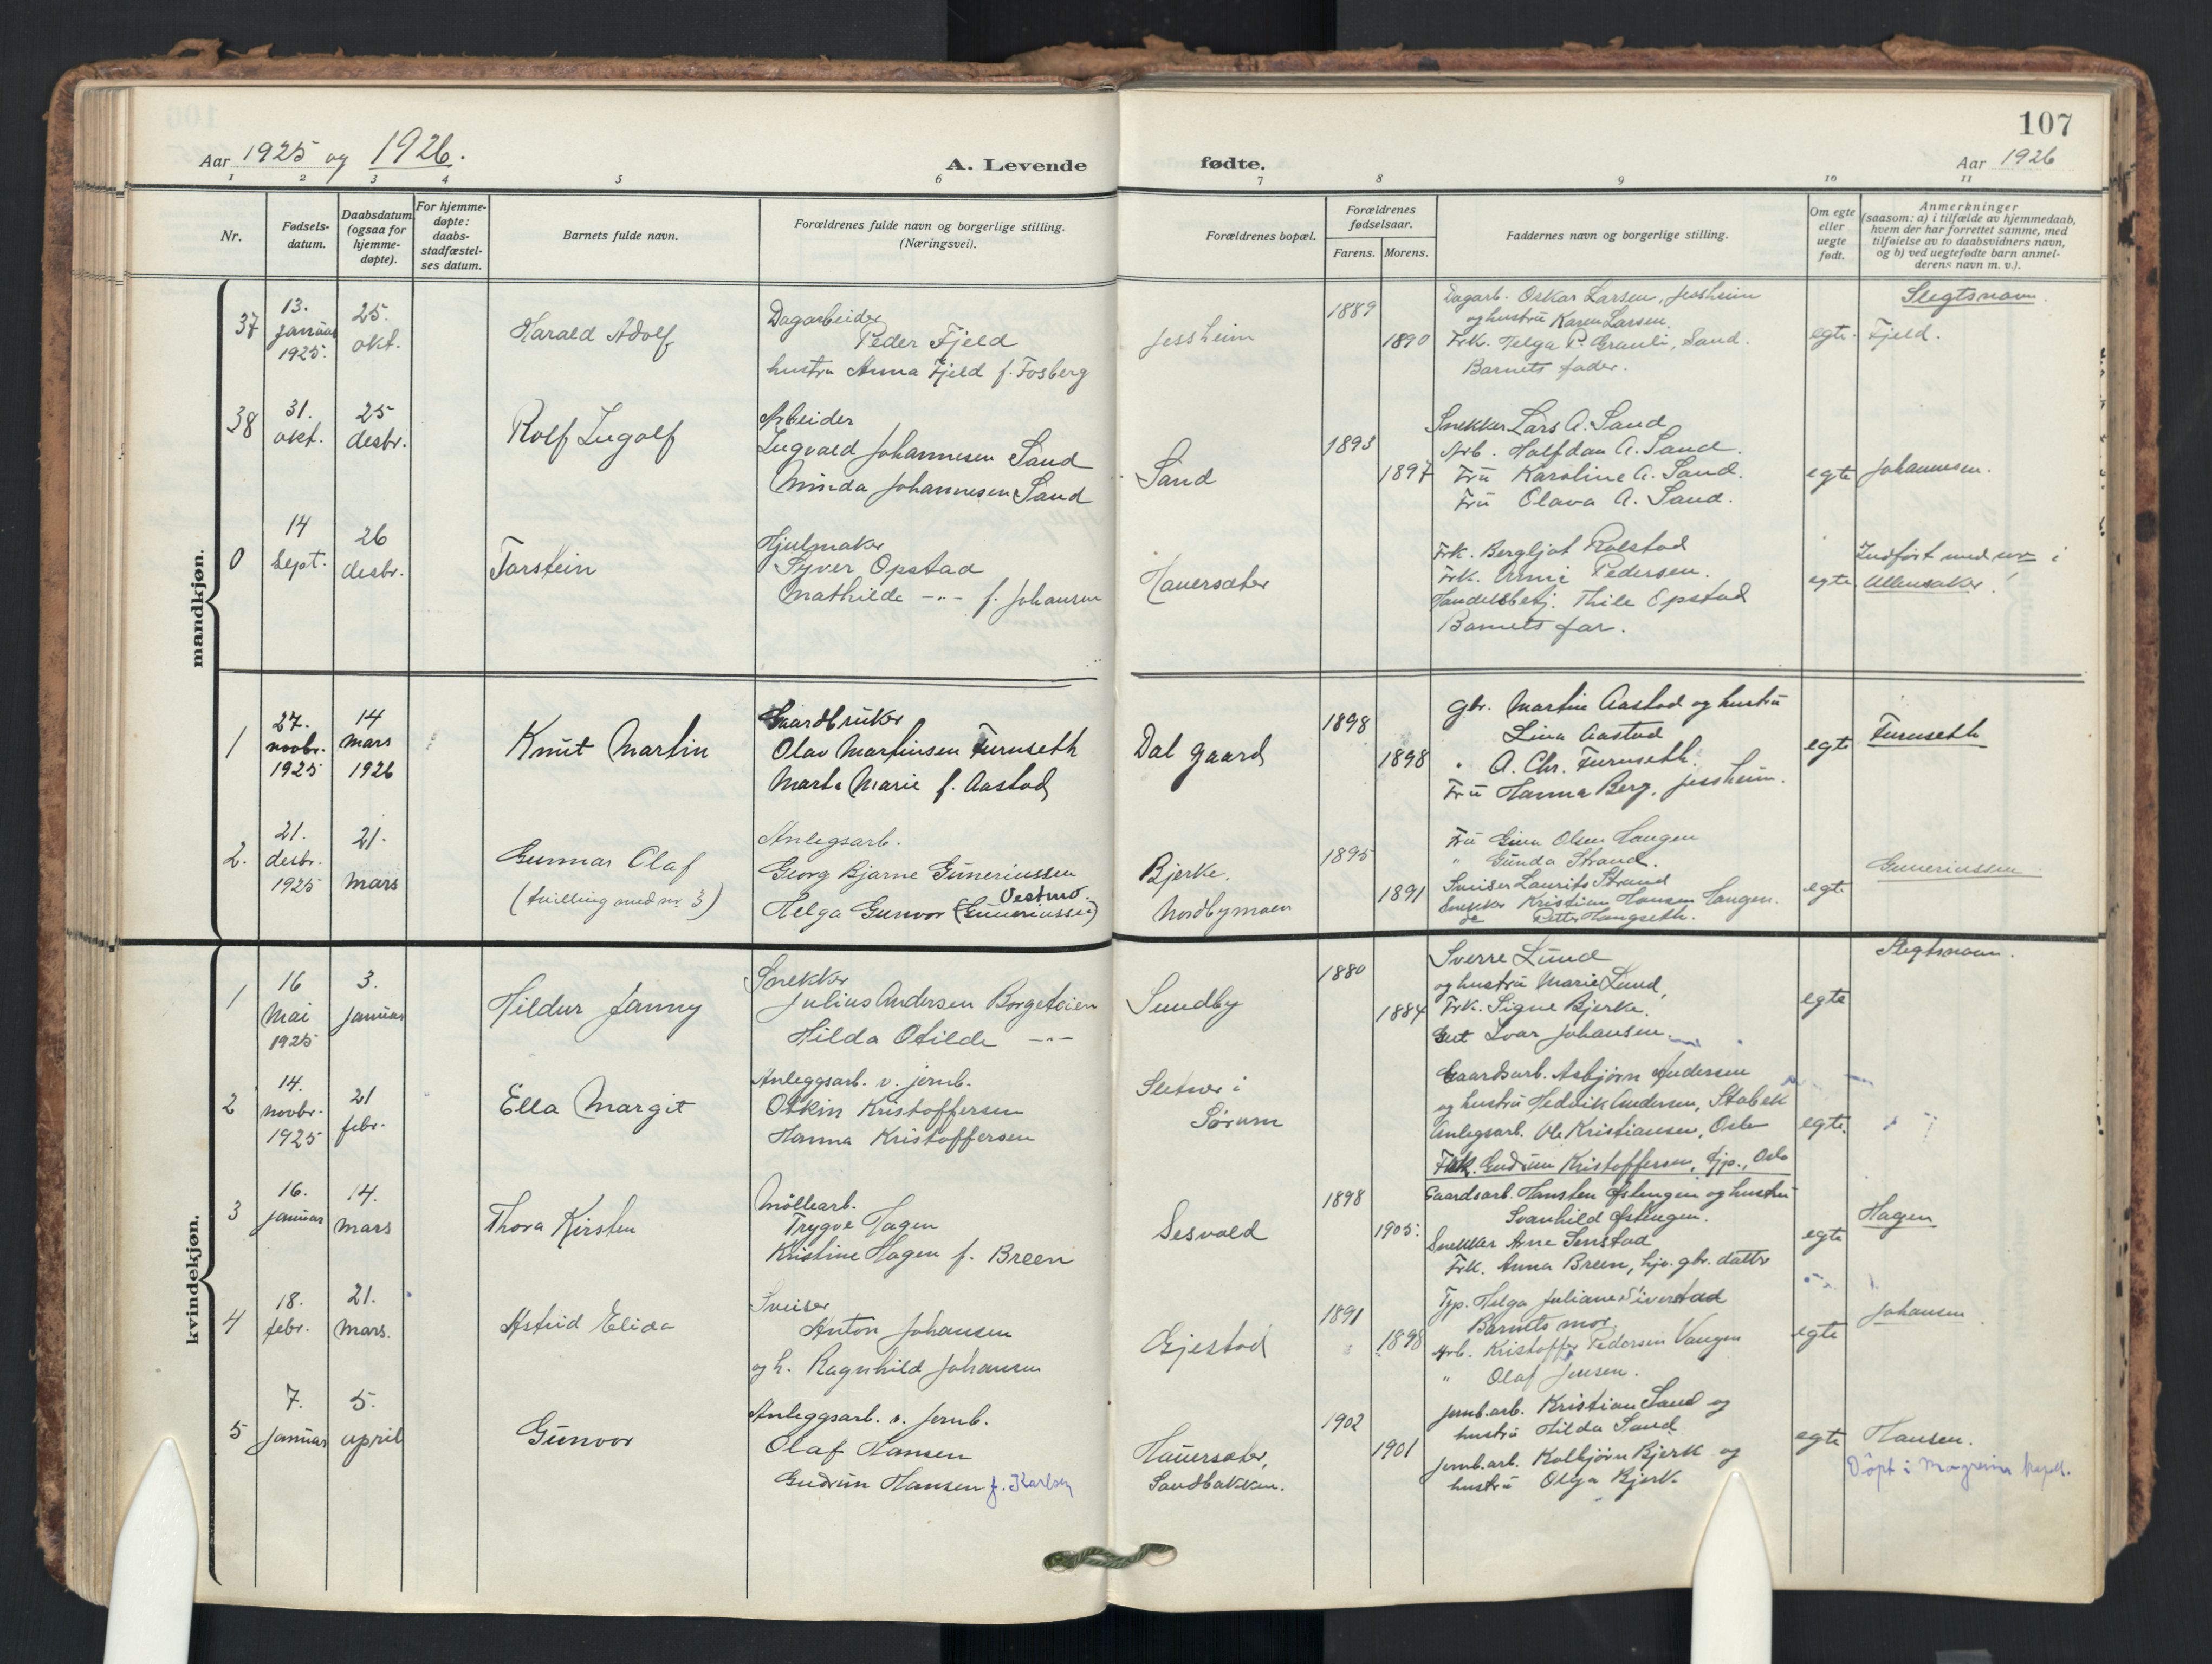 107
Aar 1925 og 1926.
A. Levende fødte.
Aar 1926
1 2 3 4 5 6 7 8 9 10 11
Nr.
Fødsels-
datum.
Daabsdatum
(ogsaa for
hjemme-
døpte).
For hjemme-
døpte:
daabs-
stadfæstel-
ses datum.
Barnets fulde navn.
Forældrenes fulde navn og borgerlige stilling.
(Næringsvei).
Forældrenes bopæl.
Forældrenes
fødselsaar.
Farens. Morens.
Faddernes navn og borgerlige stilling.
Om egte
eller
uegte
født.
Anmerkninger
(saasom: a) i tilfælde av hjemmedaab,
hvem der har forrettet samme, med
tilføielse av to daabsvidners navn,
og b) ved uegtefødte barn anmel-
derens navn m. v.).
mandkjøn.
37
13.
januar
1925.
25.
okt.
Harald Adolf
Dagarbeider
Peder Fjeld
hustru Anna Fjeld f. Fosberg
Jessheim
1889
1890
Dagarb. Oskar Larsen, Jessheim
og hustru Karen Larsen.
Frk. Helga P. Granli, Sand.
Barnets fader.
egte.
Slegtsnavn.
Fjeld.
38
31.
okt.
25
desbr.
Rolf Ingolf
Arbeider
Ingvald Johannesen Sand
Minda Johannesen Sand
Sand
1893
1897
Snekker Lars A. Sand
Arb. Halfdan A. Sand.
Fru Karoline A. Sand.
Fru Olava A. Sand.
egte
Johannesen.
0
14
Sept.
26
desbr.
Torstein
Hjulmaker
Syver Opstad
Mathilde -"- f. Johansen
Hauersæter
Frk. Bergljot Rolstad
Frk. Anni Pedersen.
Handelsbetj. Thile Opstad
Barnets far.
egte
Indført med nr i
Ullensaker!
1
27.
novbr.
1925
14
mars
1926
Knut Martin
Gaardbruker
Olav Martinsen Furuseth
Marta Marie f. Aastad
Dal gaard
1898
1898
Gbr. Martin Aastad og hustru
Lina Aastad
" A. Chr. Furuseth.
Fru Hanna Berg, Jessheim.
egte
Furuseth
2.
21.
desbr.
1925
21.
mars
Gunnar Olaf
(tvilling med nr. 3)
Anlegsarb.
Georg Bjarne Guneriussen
Vestmo.
Helga Gunvor (Guneriussen)
Bjerke.
Nordbymoen
1895
1891
Fru Gina Olsen Haugen
" Gunda Strand.
Sveiser Laurits Strand
Snekker Kristian Hansen Haugen.
do Petter Haugseth.
egte
Guneriussen
kvindekjøn.
1
16
Mai
1925
3.
januar
Hildur Janny
Snekker
Julius Andersen Borgetoien
Hilda Otilde -"-
Sundby
1880
1884
Sverre Lund
og hustru Marie Lund,
Frk. Signe Bjerke.
Gut Ivar Johansen.
egte
Slegtsnavn.
2
14.
novbr.
1925
21
febr.
Ella Margit
Anleggsarb. v. jernb.
Oskin Kristoffersen
Hanna Kristoffersen
Sletner i
Sørum
Gaardsarb. Asbjørn Andersen
og hustru Hedvik Andersen, Stabek
Anlegsarb. Ole Kristiansen, Oslo
Frk. Gudrun Kristoffersen, Tjp., Oslo
egte.
3
16.
januar
14.
mars
Thora Kirsten
Møllearb.
Trygve Hagen
Kristine Hagen f. Breen
Sesvold
1898
1905.
Gaardsarb. Hansten Østengen og hustru
Svanhild Østengen.
Snekker Arne Senstad
Frk. Anna Breen, hjv. gbr. datter
egte
Hagen
4
18.
febr.
21.
mars.
Astrid Elida
Sveiser
Anton Johansen
og h. Ragnhild Johansen
Gjestad
1891
1898
Tjp. Helga Juliane Siverstad
Barnets mor.
Arb. Kristoffer Pedersen Vangen
" Olaf Jensen.
egte
Johansen
5
7.
januar
5.
april
Gunvor
Anleggsarb. v. Jernb.
Olaf Hansen
Gudrun Hansen f. Karlsen
Hauersæter,
Sandbakken.
1902
1901
Jernb.arb. Kristian Sand og
hustru Hilda Sand.
Jernb.arb. Kolbjørn Bjerk og
hustru Olga Bjerk.
egte
Hansen.
Døpt i Mogreina kapell.